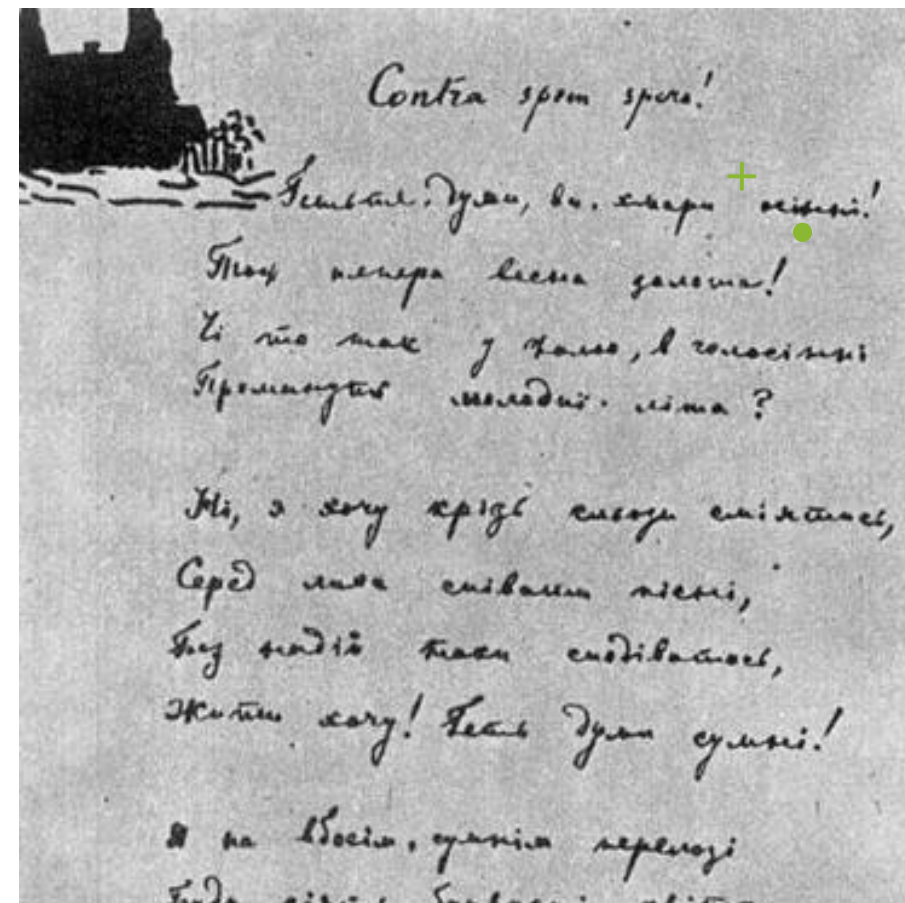 Contra spem spero!
Гетьте, думи, ви, хмари осінні!
Тож тепера весна золота!
Чи то так у жалю, в голосінні
Проминуть молодиї літа?
Ні, я хочу крізь сльози сміятись,
Серед лиха співати пісні,
Без надій таки сподіватись,
Жити хочу! Геть думи сумні!
Я на вбогім, сумнім перелозі